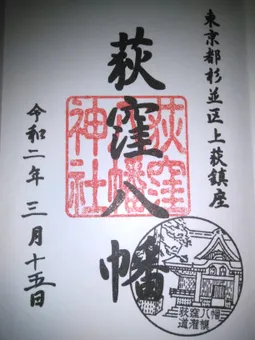 東京都杉並区上荻鎮座
荻窪八幡
荻窪
八幡
神社
令和二年三月十五日
荻窪八幡